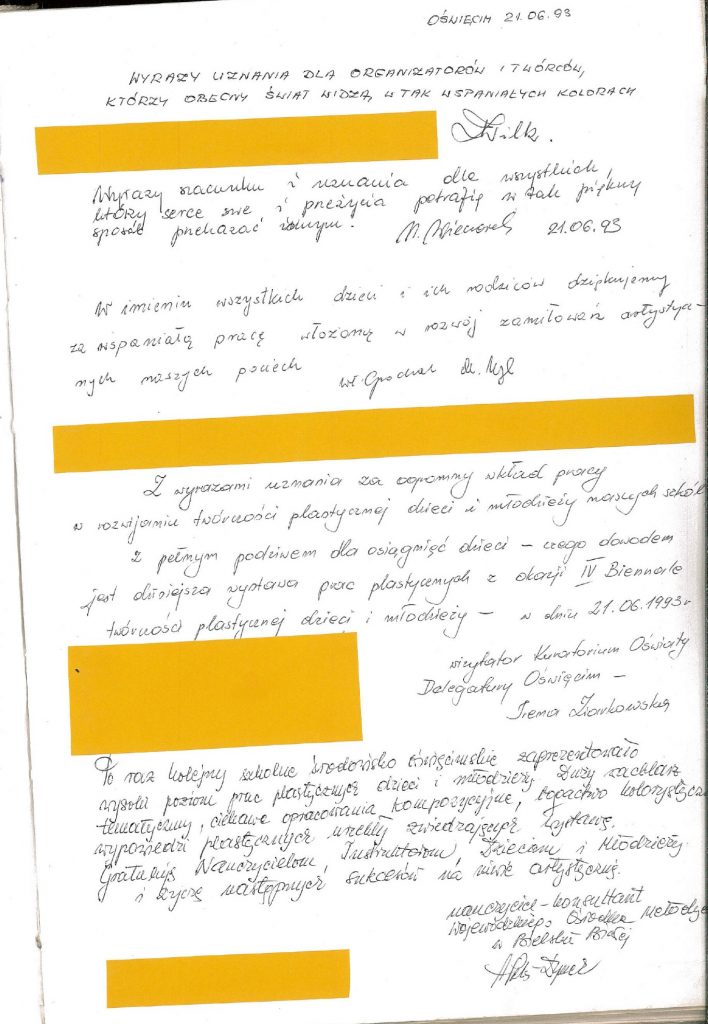 OŚWIĘCIM 21.06.93
WYRAZY UZNANIA DLA ORGANIZATORÓW I TWÓRCÓW,
KTÓRZY OBECNY ŚWIAT WIDZĄ W TAK WSPANIAŁYCH KOLORACH
Wilk.
Wyrazy szacunku i uznania dla wszystkich,
który serce swe i przeżycia potrafią w tak piękny
sposób przekazać innym. 21.06.93
W imieniu wszystkich dzieci i ich rodziców dziękujemy
za wspaniałą pracę włożoną w rozwój zamiłowań artystycz-
nych naszych pociech
Z wyrazami uznania za ogromny wkład pracy
w rozwijaniu twórczości plastycznej dzieci i młodzieży naszych szkół
z pełnym podziwem dla osiągnięć dzieci – czego dowodem
jest dzisiejsza wystawa prac plastycznych z okazji IV Biennale
twórczości plastycznej dzieci i młodzieży – w dniu 21.06.1993 r
wizytator Kuratorium Oświaty
Delegatury Oświęcim –
Irena Ziarkowska
Po raz kolejny szkolne środowisko oświęcimskie zaprezentowało
wysoki poziom prac plastycznych dzieci i młodzieży. Duży wachlarz
tematyczny, ciekawe opracowania kompozycyjne, bogactwo kolorystyczne
wypowiedzi plastycznych urzekły zwiedzających wystawę.
Gratuluję Nauczycielom, Instruktorom, Dzieciom i Młodzieży
i życzę następnych sukcesów na niwie artystycznej.
nauczyciel – konsultant
Wojewódzkiego Ośrodka Metodycz
w Bielsku Białej